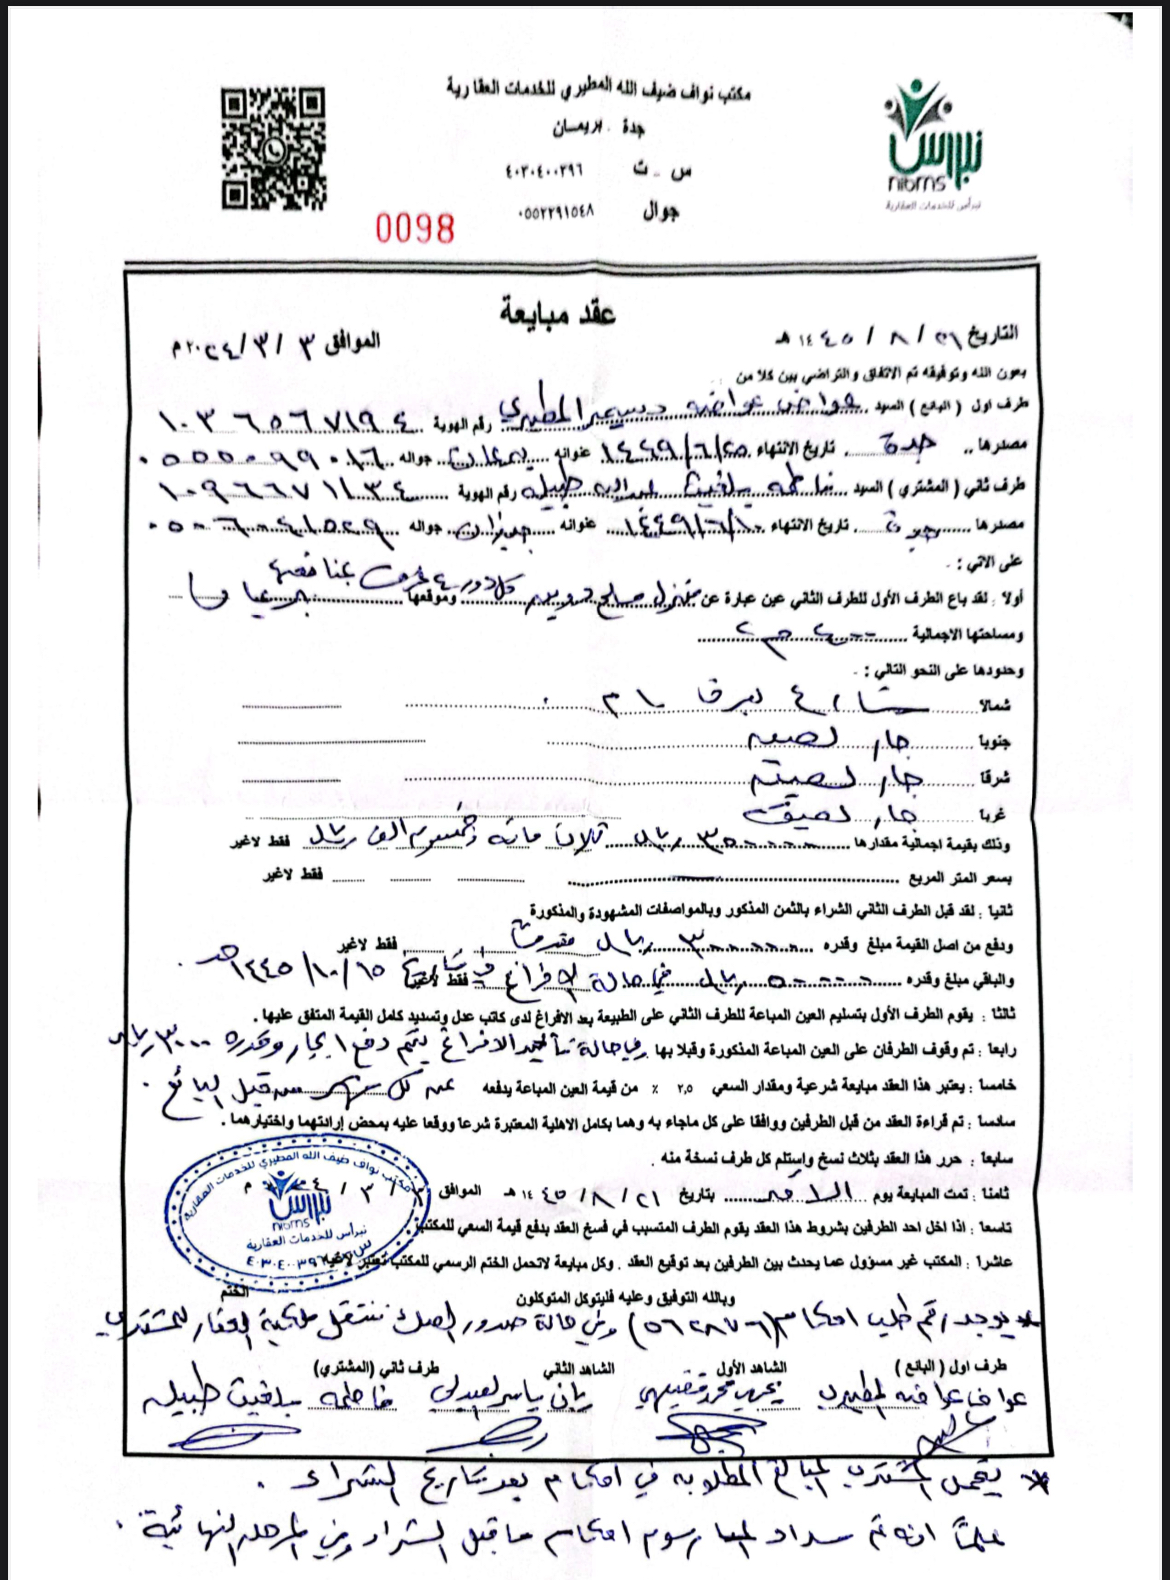 مكتب نواف ضيف الله المطيري للخدمات العقارية
جدة - بريمان
س - ت ٤٠٣٠٤٠٠٣٩٦
جوال ٠٥٥٢٢٩١٥٤٨
0098
نبراس
nibrns
نبراس للخدمات العقارية
عقد مبايعة
التاريخ ٢١ / ٨ / ١٤٤٥ هـ الموافق ٣ / ٣ / ٢٠٢٤ م
بعون الله وتوفيقه تم الاتفاق والتراضي بين كلا من :
طرف اول ( البائع ) السيد عواض عواضه المطيري رقم الهوية ١٠٣٦٥٦٧١٩٤
مصدرها جدة تاريخ الانتهاء ١٤٤٩/٦/٢٥ عنوانه بريمان جواله ٠٥٥٥٠٩٩٠١٦
طرف ثاني ( المشتري ) السيد فاطمه بلغيث عبدالله طبيله رقم الهوية ١٠٩٦٦٧١١٣٤
مصدرها جدة تاريخ الانتهاء ١٤٤٩/٦/١٠ عنوانه جواله ٠٥٠٦٠٤١٥٢٩
على الاتي : -
أولا : لقد باع الطرف الأول للطرف الثاني عين عبارة عن منزل مسلح دورين كل دور ٤ غرف بمنافعها وموقعها
ومساحتها الاجمالية ٤٠٠ م٢
وحدودها على النحو التالي : -
شمالا شارع بعرض ١٠ م
جنوبا جار لصيقه
شرقا جار لصيقه
غربا جار لصيق
وذلك بقيمة اجمالية مقدارها ٣٥٠٠٠٠ ريال ثلاث مائه وخمسون الف ريال فقط لاغير
بسعر المتر المربع فقط لاغير
ثانيا : لقد قبل الطرف الثاني الشراء بالثمن المذكور وبالمواصفات المشهودة والمذكورة
ودفع من اصل القيمة مبلغ وقدره ٣٠٠٠٠٠ ريال مقدماً فقط لاغير
والباقي مبلغ وقدره ٥٠٠٠٠ ريال في حالة الافراغ في تاريخ ١٤٤٥/١٠/١٥ هـ فقط لاغير
ثالثا : يقوم الطرف الأول بتسليم العين المباعة للطرف الثاني على الطبيعة بعد الافراغ لدى كاتب عدل وتسديد كامل القيمة المتفق عليها .
رابعا : تم وقوف الطرفان على العين المباعة المذكورة وقبلا بها وفي حالة تأخير الافراغ يتم دفع ايجار وقدره ٣٠٠٠ ريال
خامسا : يعتبر هذا العقد مبايعة شرعية ومقدار السعي ٢,٥ ٪ من قيمة العين المباعة يدفعه عن كل شهر من قبل البائع .
سادسا : تم قراءة العقد من قبل الطرفين ووافقا على كل ماجاء به وهما بكامل الاهلية المعتبرة شرعا ووقعا عليه بمحض إرادتهما واختيارهما .
سابعا : حرر هذا العقد بثلاث نسخ وإستلم كل طرف نسخة منه .
ثامنا : تمت المبايعة يوم الاحد بتاريخ ٢١ / ٨ / ١٤٤٥ هـ الموافق ٣ / ٣ / ٢٠٢٤ م
تاسعا : اذا اخل احد الطرفين بشروط هذا العقد يقوم الطرف المتسبب في فسخ العقد بدفع قيمة السعي للمكتب
عاشرا : المكتب غير مسؤول عما يحدث بين الطرفين بعد توقيع العقد . وكل مبايعة لاتحمل الختم الرسمي للمكتب تعتبر لاغية
مكتب نواف ضيف الله المطيري للخدمات العقارية
نبراس
nibrns
نبراس للخدمات العقارية
س.ت ٤٠٣٠٤٠٠٣٩٦
وبالله التوفيق وعليه فليتوكل المتوكلون الختم
* يوجد رقم طلب احكام (٥٦٢٨٧٠٦) وفي حالة صدور الصك تنتقل ملكية العقار للمشتري
طرف اول ( البائع ) الشاهد الأول الشاهد الثاني طرف ثاني (المشتري)
عواض عواضه المطيري يحيى محمد ريان ياسر العبدلي فاطمه بلغيث طبيله
* يتحمل المشتري المبالغ المطلوبه في احكام بعد تاريخ الشراء .
علماً انه تم سداد رسوم احكام ما قبل الشراء وفي المرحله النهائية .